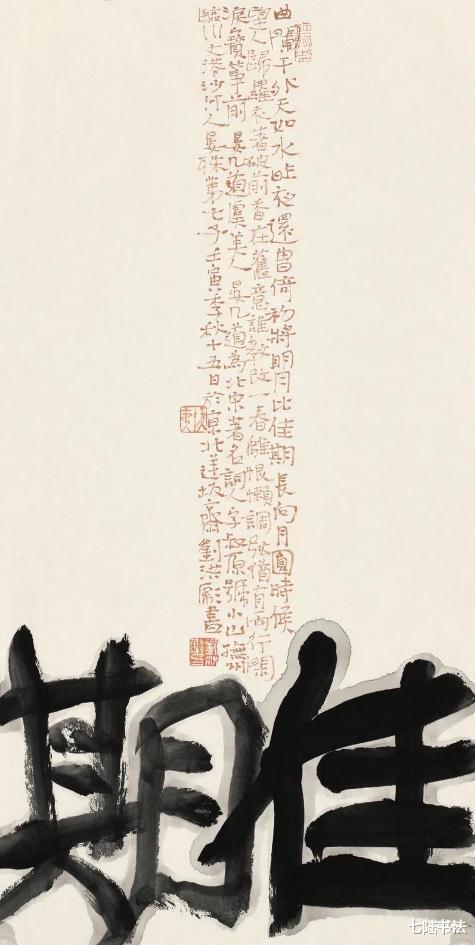 曲闌干外天如水昨夜還曾倚初將明月比佳期長向月圓時候
望人歸羅衣著破前香在舊意誰教改一春離恨懶調弦猶有兩行閑
淚寶箏前 晏几道虞美人 晏几道為北宋著名詞人字叔原號小山撫州
臨川文港沙河人晏殊第七子壬寅季秋十五日於京北逆坂齋劉洪彪書
佳期
七陆书法